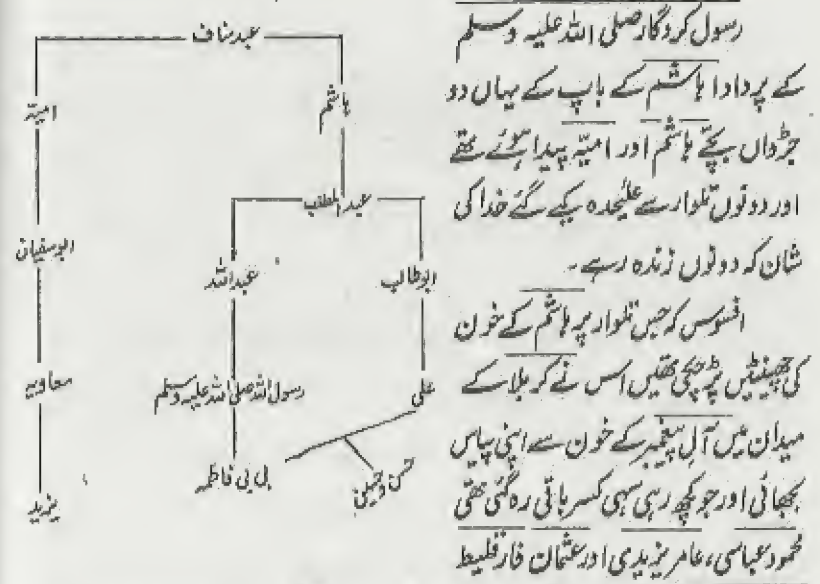 رسول کردگار صلی اللہ علیہ وسلم
کے پردادا ہاشم کے باپ کے یہاں دو
جڑواں بچے ہاشم اور امیّہ پیدا ہوئے تھے
اور دونوں تلوار سے علیٰحدہ کیے گئے خدا کی
شان کہ دونوں زندہ رہے ۔
افسوس کہ جس تلوار پر ہاشم کے خون
کی چھینٹیں پڑ چکی تھیں اس نے کربلا کے
میدان میں آل پیغمبر کے خون سے اپنی پیاس
بجھائی اور جو کچھ رہی سہی کسر باقی رہ گئی تھی
محمود عباسی، عامر یزیدی اور عثمان فارقلیط
عبد مناف
ہاشم
امیّہ
عبد المطلب
ابوطالب
عبداللہ
ابوسفیان
علی
رسول اللہ صلی اللہ علیہ وسلم
معاویہ
حسن و حسین
بی بی فاطمہ
یزید